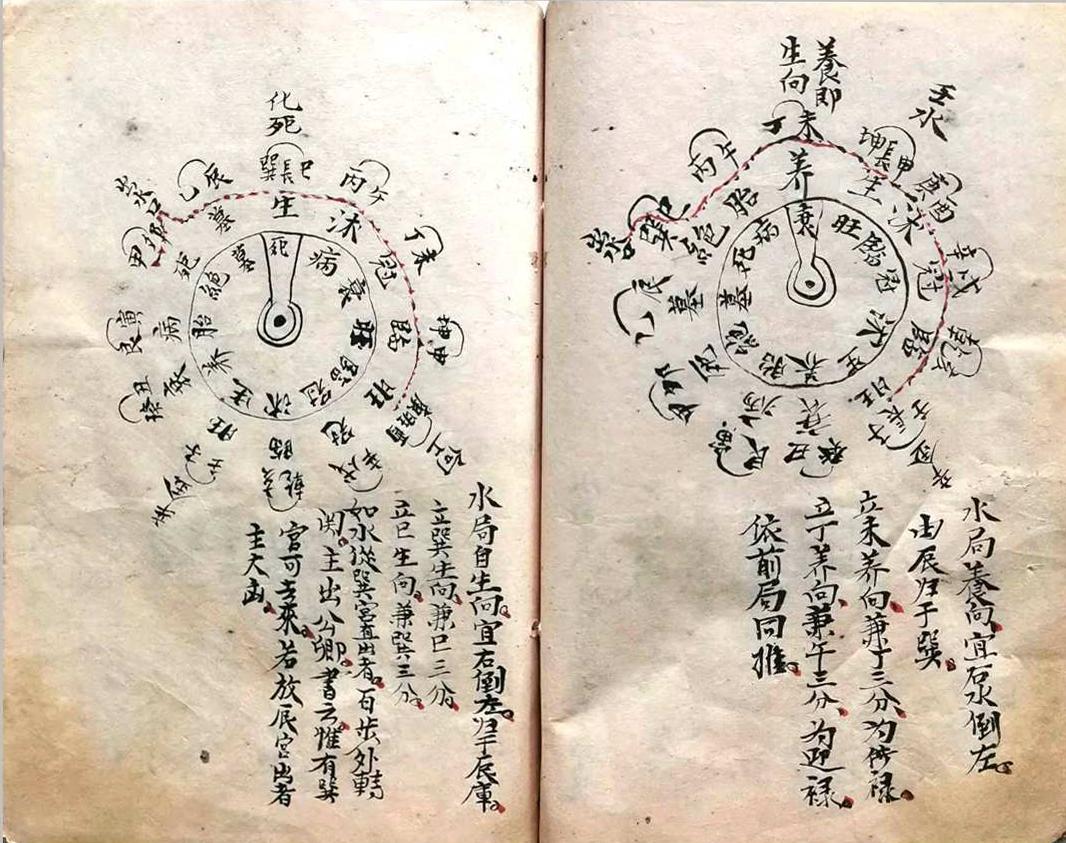 養即
生向
壬水
丁未
坤長申
庚酉
辛戌
乾亥
丙午
養
生
沐
冠
臨
旺
衰
病
墓
絕
胎
衰
旺
臨
冠
沐
生
養
胎
墓
死
病
水局養向宜右水倒左
由辰归于巽
立未养向兼丁三分为借禄
立丁养向兼午三分为迎禄
依前局同推
化死
巽長巳
丙午
丁未
坤申
庚酉
辛戌
乾亥
癸丑
艮寅
乙辰
生
沐
冠
臨
旺
冠
臨
旺
病
死
墓
死
病
衰
旺
臨
冠
沐
生
养
胎
絕
墓
水局自生向宜右倒左归于辰庫
立巽生向兼巳三分
立巳生向兼巽三分
如水從巽宮直出者百步外轉
関主出公卿書云惟有巽
宮可去來若放辰宮出者
主大凶